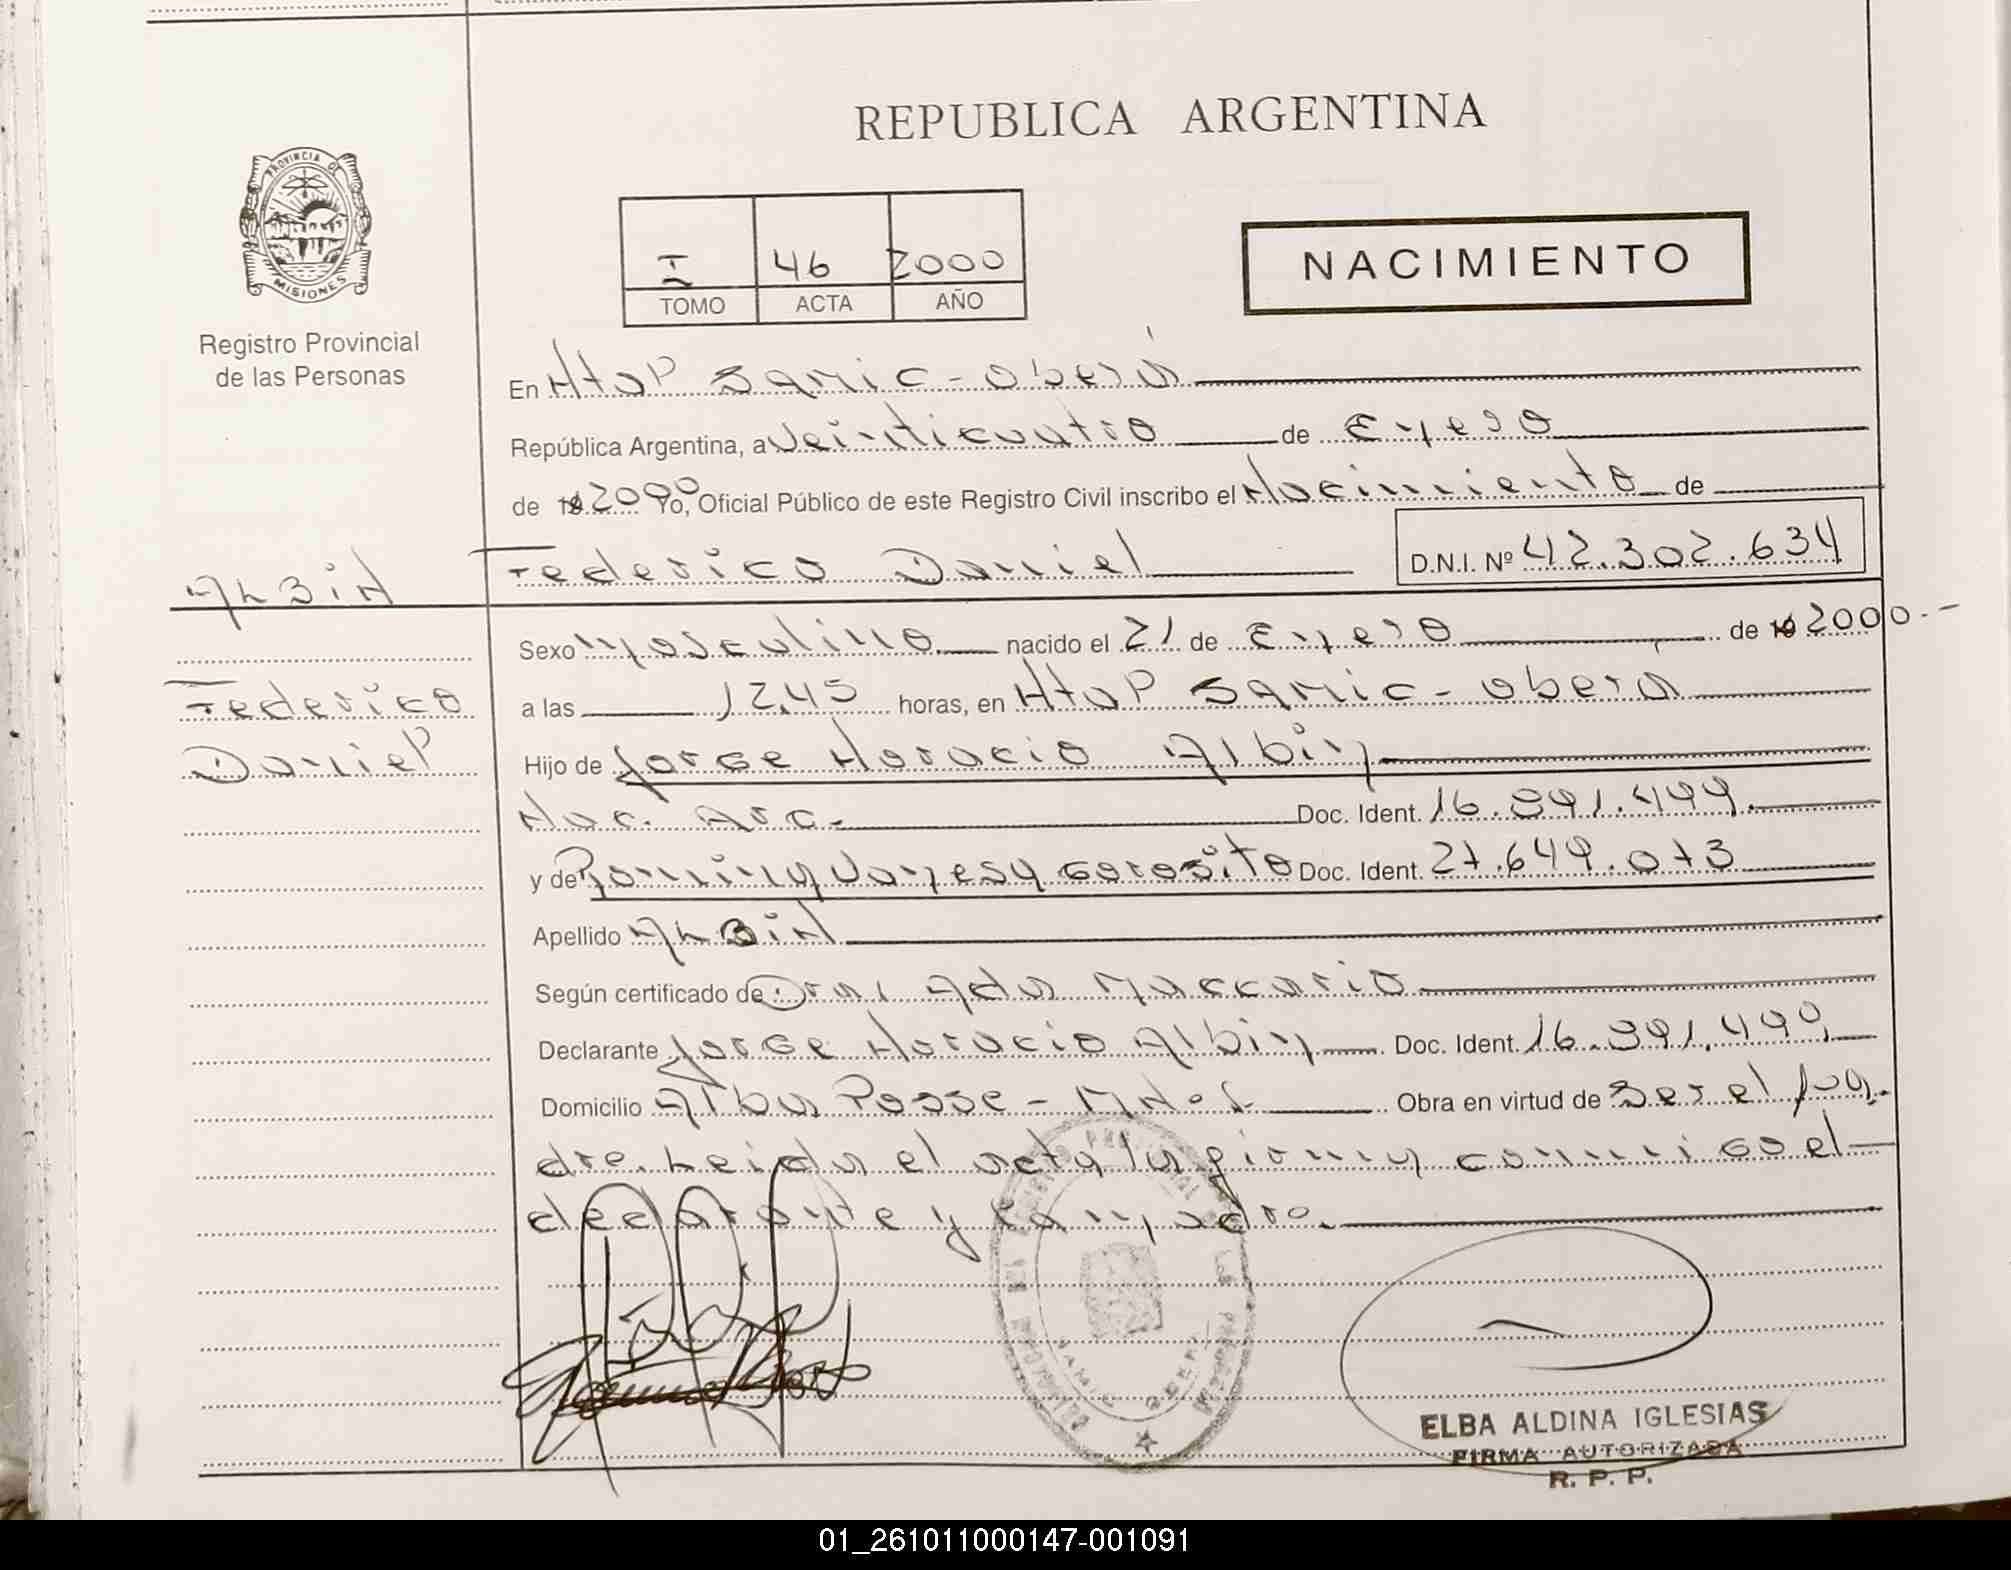 REPUBLICA ARGENTINA
PROVINCIA DE MISIONES
Registro Provincial
de las Personas
I 46 2000
TOMO ACTA AÑO
NACIMIENTO
En Htal Samic - Oberá
República Argentina, a Veinticuatro de Enero
de 19 2000 Yo, Oficial Público de este Registro Civil inscribo el Nacimiento de
Federico Daniel D.N.I. Nº 42.302.634
ALBIN
Federico
Daniel
Sexo Masculino nacido el 21 de Enero de 19 2000.-
a las 12,45 horas, en Htal Samic - Oberá
Hijo de Jorge Horacio Albin
Nac. Arg. Doc. Ident. 16.891.499.
y de Romina Vanesa Gorosito Doc. Ident. 27.649.073
Apellido ALBIN
Según certificado de Dra. Ada Maccario
Declarante Jorge Horacio Albin Doc. Ident. 16.891.499
Domicilio Alba Posse - Mnes. Obra en virtud de Ser el pa-
dre. Leida el acta la firma conmigo el
declarante y la madre.
SAMIC OBERA
ELBA ALDINA IGLESIAS
FIRMA AUTORIZADA
R. P. P.
01_261011000147-001091